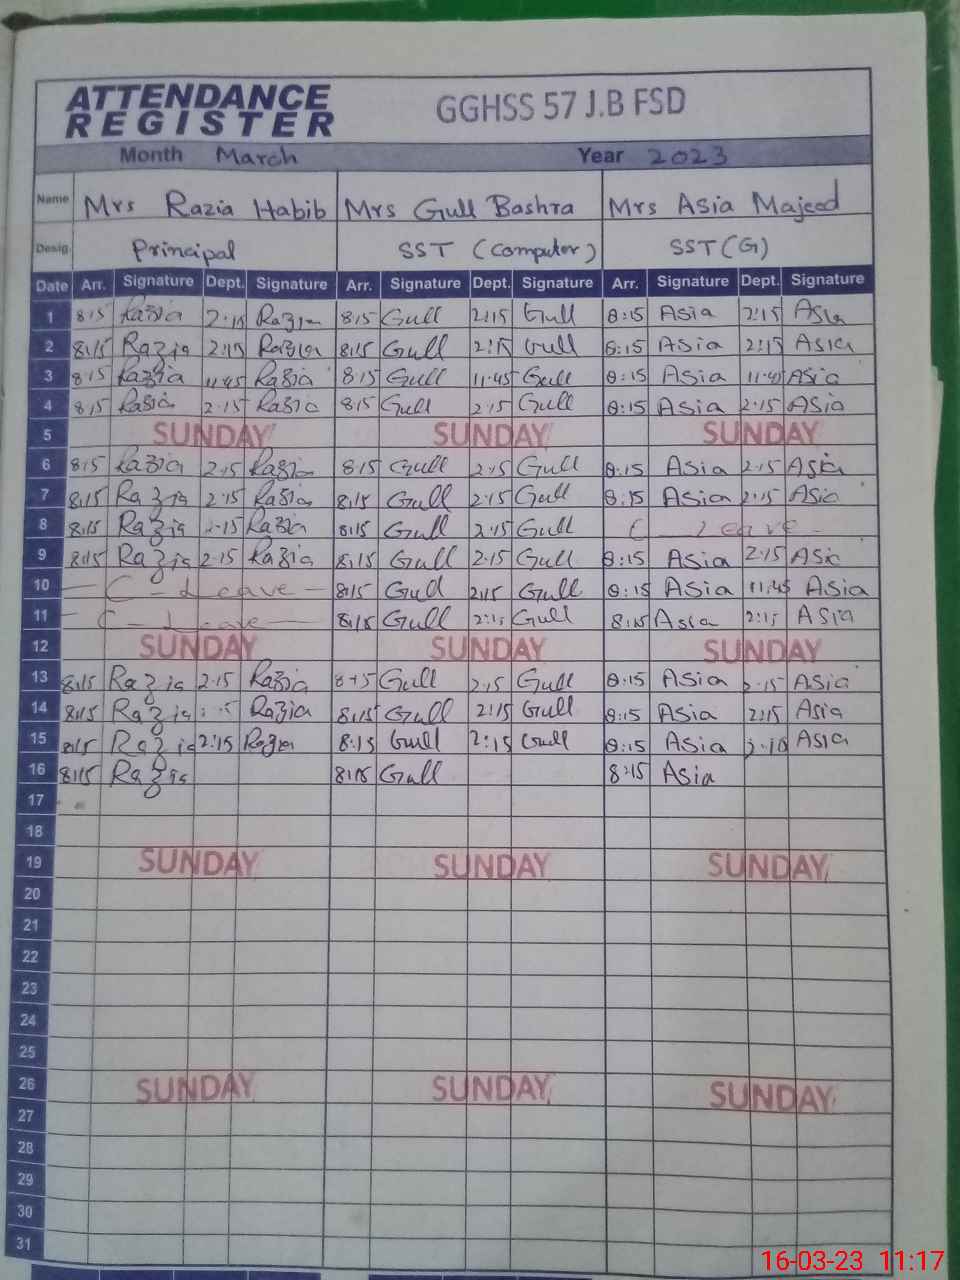 ATTENDANCE REGISTER GGHSS 57 J.B FSD
Month March Year 2023
Name Mrs Razia Habib Mrs Gull Bashra Mrs Asia Majeed
Desig. Principal SST (Computer) SST (G)
Date Arr. Signature Dept. Signature Arr. Signature Dept. Signature Arr. Signature Dept. Signature
1 8:15 Razia 2:15 Razia 8:15 Gull 2:15 Gull 8:15 Asia 2:15 Asia
2 8:15 Razia 2:15 Razia 8:15 Gull 2:15 Gull 8:15 Asia 2:15 Asia
3 8:15 Razia 11:45 Razia 8:15 Gull 11:45 Gull 8:15 Asia 11:45 Asia
4 8:15 Razia 2:15 Razia 8:15 Gull 2:15 Gull 8:15 Asia 2:15 Asia
5 SUNDAY SUNDAY SUNDAY
6 8:15 Razia 2:15 Razia 8:15 Gull 2:15 Gull 8:15 Asia 2:15 Asia
7 8:15 Razia 2:15 Razia 8:15 Gull 2:15 Gull 8:15 Asia 2:15 Asia
8 8:15 Razia 2:15 Razia 8:15 Gull 2:15 Gull C Leave -
9 8:15 Razia 2:15 Razia 8:15 Gull 2:15 Gull 8:15 Asia 2:15 Asia
10 - C - Leave - 8:15 Gull 2:15 Gull 8:15 Asia 11:45 Asia
11 - C - Leave - 8:15 Gull 2:15 Gull 8:15 Asia 2:15 Asia
12 SUNDAY SUNDAY SUNDAY
13 8:15 Razia 2:15 Razia 8:15 Gull 2:15 Gull 8:15 Asia 2:15 Asia
14 8:15 Razia Razia 8:15 Gull 2:15 Gull 8:15 Asia 2:15 Asia
15 8:15 Razia 2:15 Razia 8:15 Gull 2:15 Gull 8:15 Asia Asia
16 8:15 Razia 8:15 Gull 8:15 Asia
17
18
19 SUNDAY SUNDAY SUNDAY
20
21
22
23
24
25
26 SUNDAY SUNDAY SUNDAY
27
28
29
30
31
16-03-23 11:17